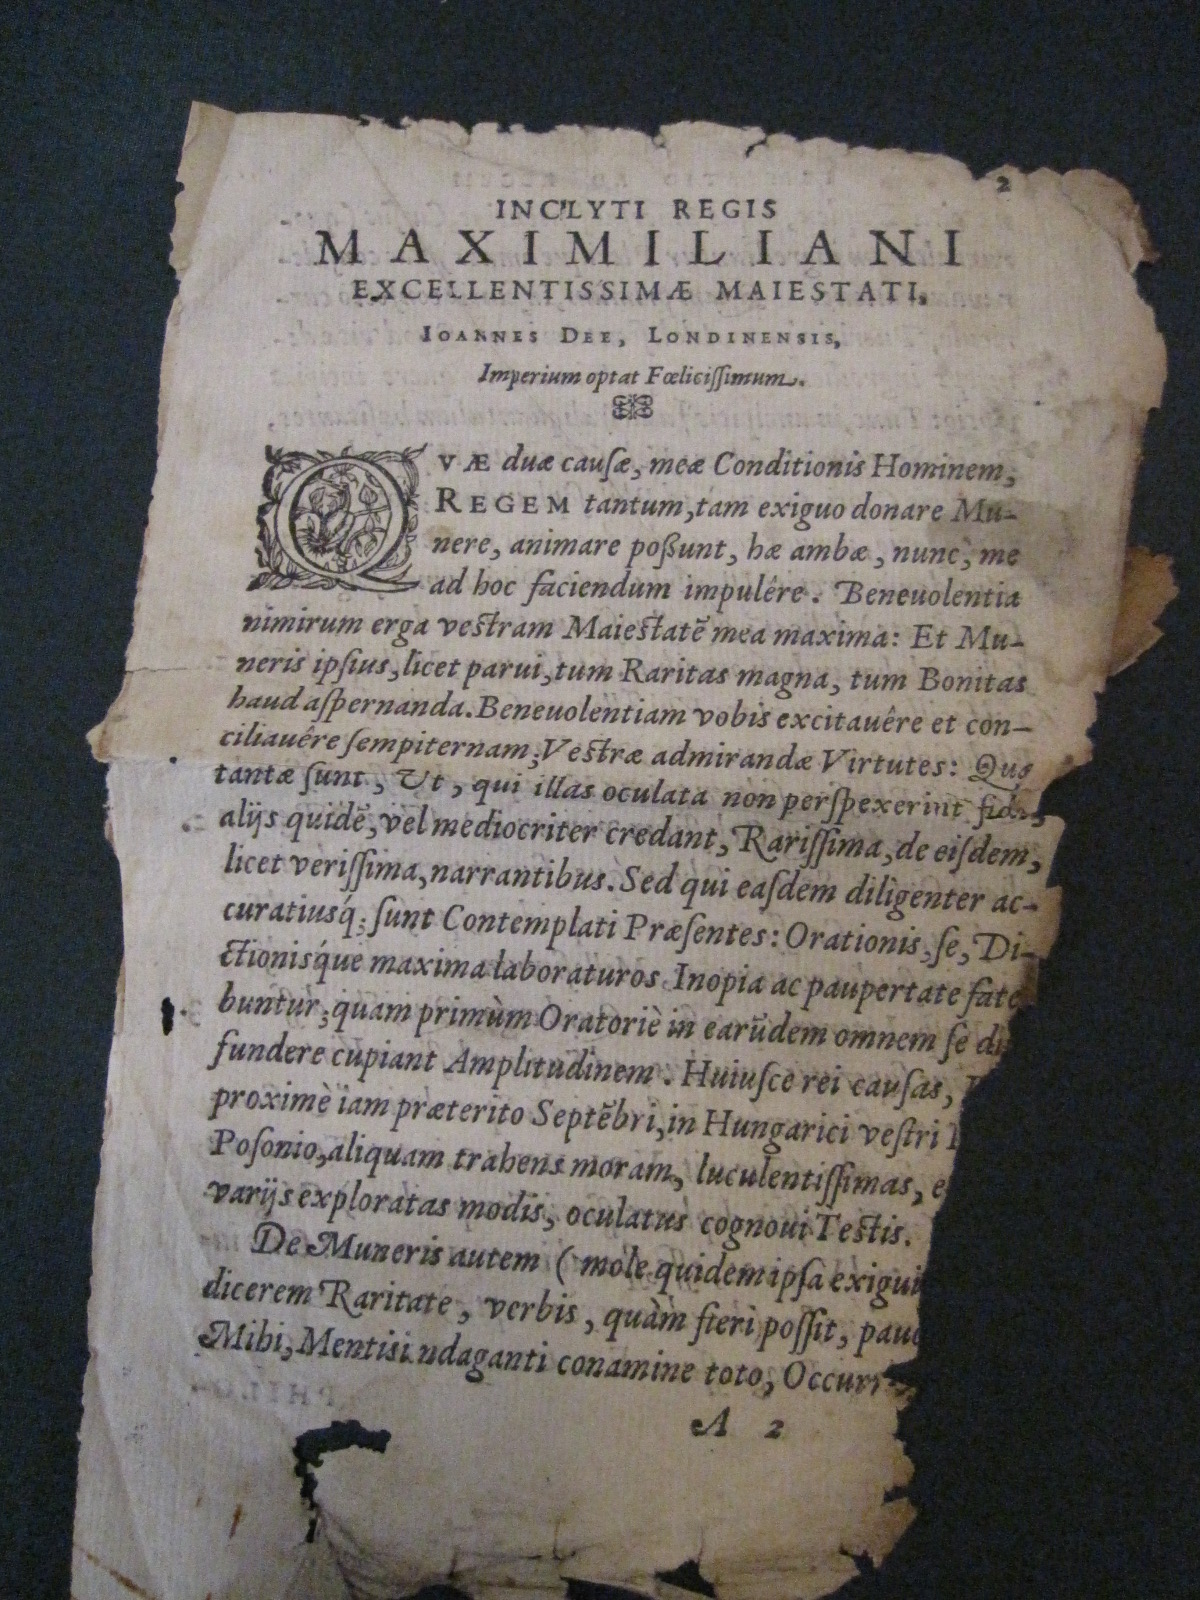 2
INCLYTI REGIS
MAXIMILIANI
EXCELLENTISSIMÆ MAIESTATI,
IOANNES DEE, LONDINENSIS,
Imperium optat Fœliciſſimum.
QVÆ duæ cauſæ, meæ Conditionis Hominem,
REGEM tantum, tam exiguo donare Mu-
nere, animare poßunt, hæ ambæ, nunc, me
ad hoc faciendum impulêre. Beneuolentia
nimirum erga veſtram Maieſtatē mea maxima: Et Mu-
neris ipſius, licet parui, tum Raritas magna, tum Bonitas
haud aſpernanda. Beneuolentiam vobis excitauêre et con-
ciliauêre ſempiternam; Veſtræ admirandæ Virtutes: Quæ
tantæ ſunt, Ut, qui illas oculata non perſpexerint fide,
alijs quidē, vel mediocriter credant, Rariſſima, de eiſdem,
licet veriſſima, narrantibus. Sed qui eaſdem diligenter ac-
curatiusq́; ſunt Contemplati Præſentes: Orationis, ſe, Di-
ctionisq́ue maxima laboraturos Inopia ac paupertate fate
buntur; quam primùm Oratoriè in earūdem omnem ſe di
fundere cupiant Amplitudinem. Huiuſce rei cauſas,
proximè iam præterito Septēbri, in Hungarici veſtri
Poſonio, aliquam trahens moram, luculentiſſimas, e
varijs exploratas modis, oculatus cognoui Teſtis.
De Muneris autem (mole quidem ipſa exigui
dicerem Raritate, verbis, quàm fieri poſſit, pauc
Mihi, Mentis indaganti conamine toto, Occurr
A 2